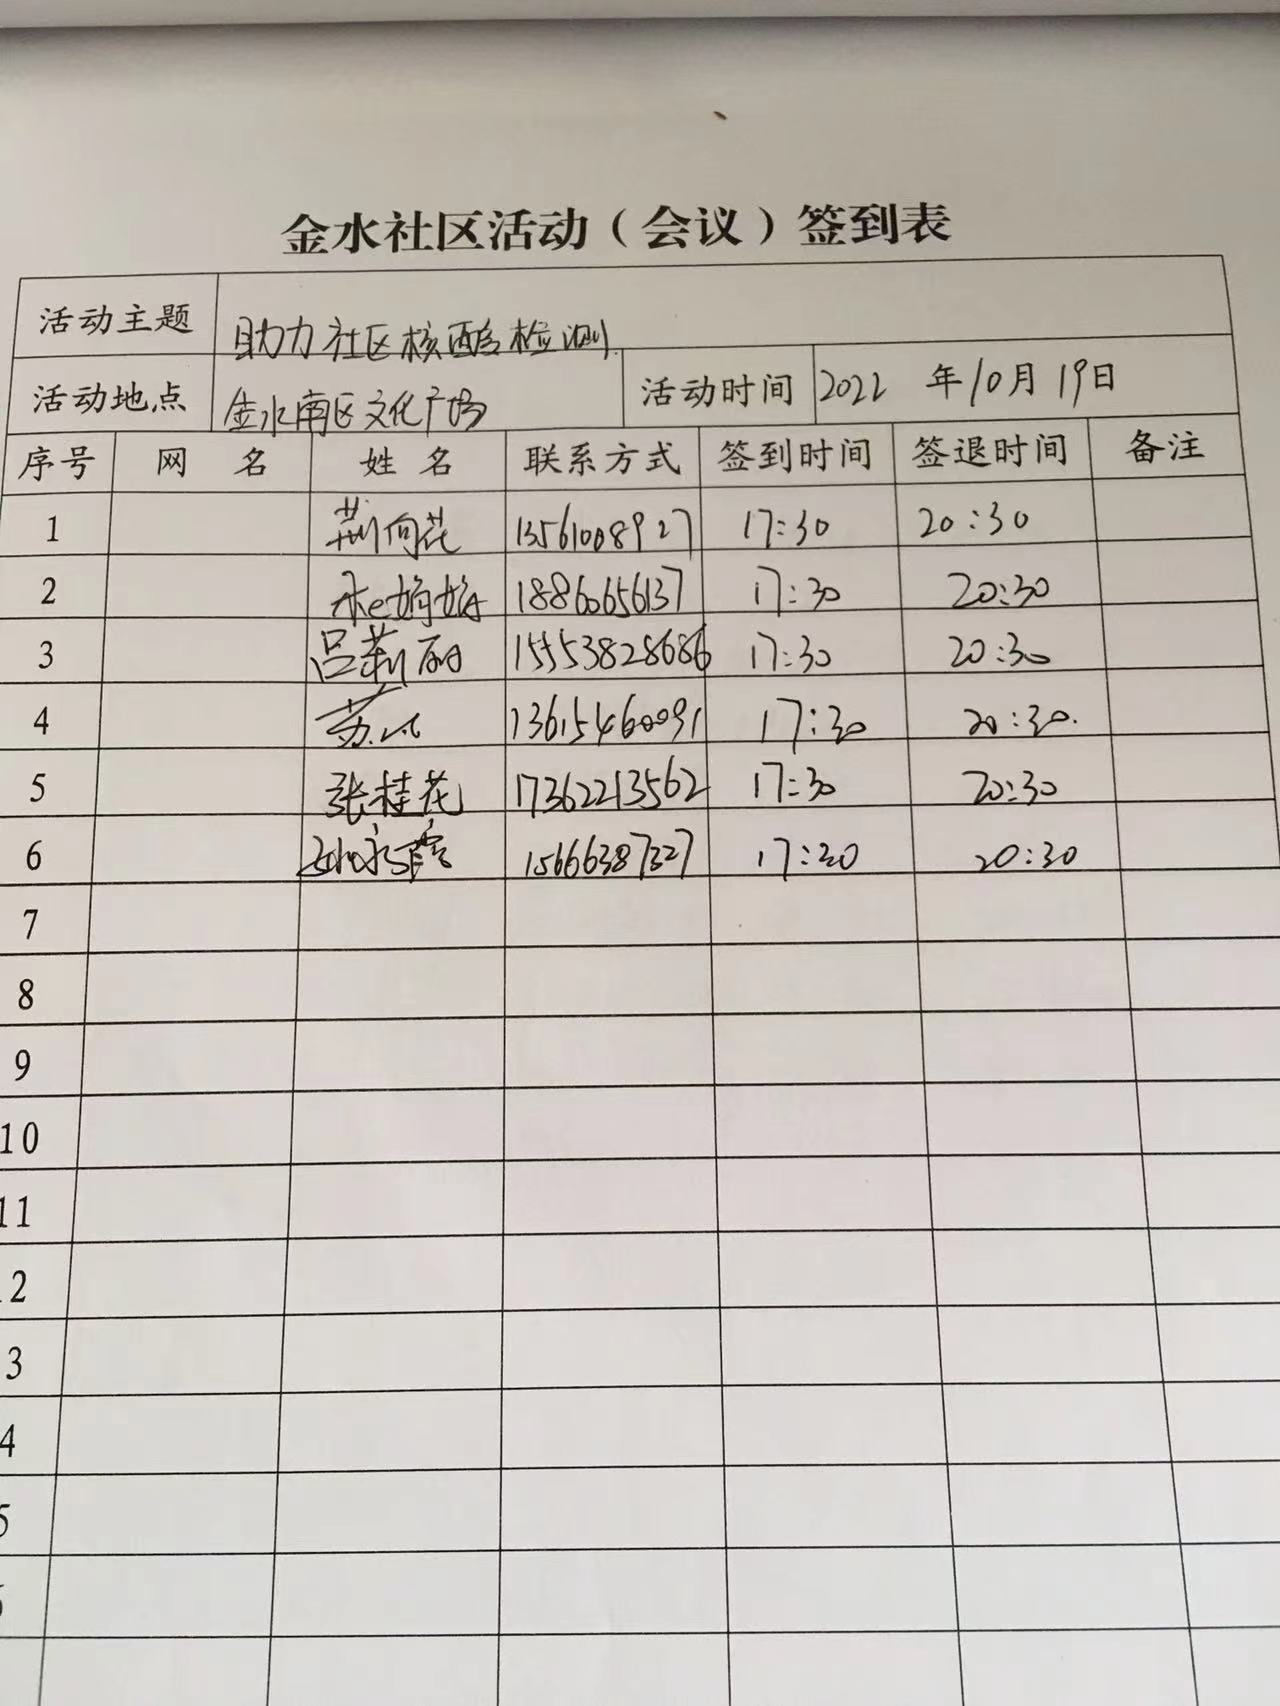 金水社区活动（会议）签到表
活动主题 助力社区核酸检测
活动地点 金水南区文化广场 活动时间 2022 年10月19日
序号 网 名 姓 名 联系方式 签到时间 签退时间 备注
1 荆向花 13561008927 17:30 20:30
2 娟娟 18860656137 17:30 20:30
3 吕莉丽 15553828686 17:30 20:30
4 苏 13615460091 17:30 20:30.
5 张桂花 17362213562 17:30 20:30
6 永霞 15666387327 17:30 20:30
7
8
9
10
11
2
3
4
5